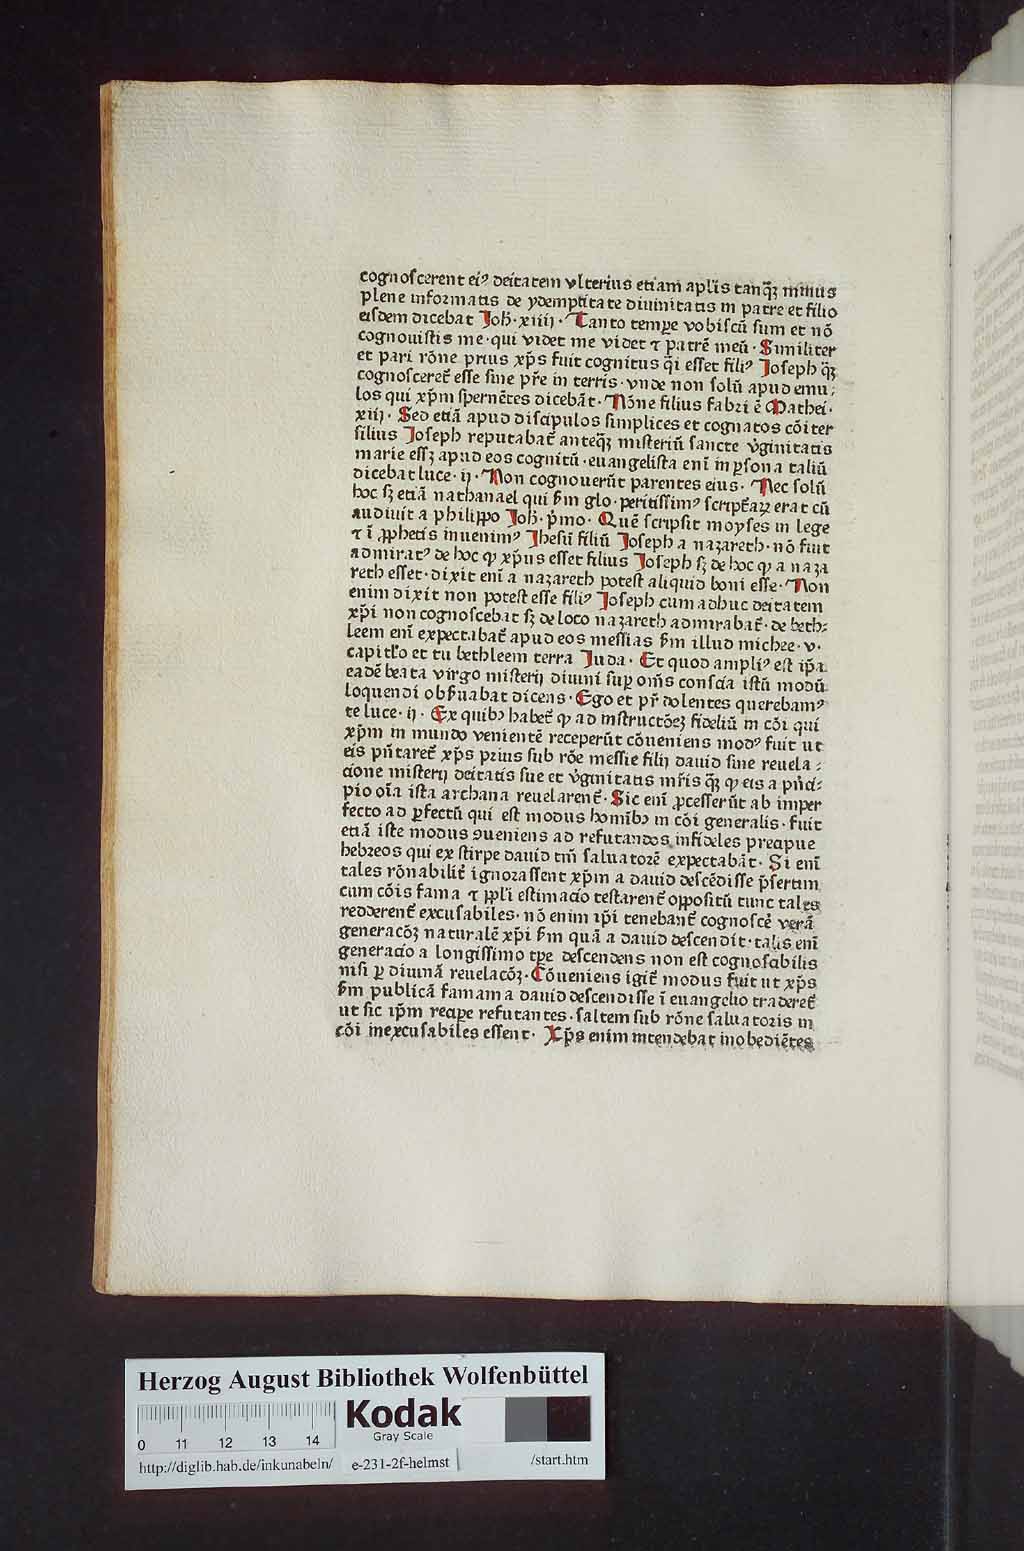 cognoscerent ei⁹ deitatem vlterius etiam aplis tanq̃ꝫ minus
plene informatis de ydemptitate diuinitatis in patre et filio
eisdem dicebat Joh̄·xiiij· Tanto tempe vobiscū sum et nō
cognouistis me·qui videt me videt ⁊ patrē meū· Similiter
et pari rōne prius xp̄s fuit cognitus q̄i esset fili⁹ Joseph q̄ꝫ
cognosceret̄ esse sine pr̄e in terris· vnde non solū apud emu⸗
los qui xp̄m spernētes dicebāt· Nōne filius fabri ē Mathei·
xiij· Sed etiā apud discipulos simplices et cognatos cōiter
filius Joseph reputabat̄ anteq̄ꝫ misteriū sancte v̄ginitatis
marie essꝫ apud eos cognitū·euangelista eni̅ in ꝑsona taliū
dicebat luce·ij· Non cognouerūt parentes eius· Nec solū
hoc sꝫ etiā nathanael qui sm̄ glo·peritissim⁹ script̄aꝝ erat cū
audiuit a philippo Joh̄·pͥmo· Quē scripsit moyses in lege
⁊ ī ꝓphetis inuenim⁹ Jhesū filiū Joseph a nazareth·nō fuit
admirat⁹ de hoc ꝙ xp̄us esset filius Joseph sꝫ de hoc ꝙ a naza
reth esset·dixit eni̅ a nazareth potest aliquid boni esse· Non
enim dixit non potest esse fili⁹ Joseph cum adhuc deitatem
xp̄i non cognoscebat sꝫ de loco nazareth admirabat̄·de beth⸗
leem eni̅ expectabat̄ apud eos messias sm̄ illud michee·v·
capitl̓o et tu bethleem terra Juda· Et quod ampli⁹ est ip̄a
eadē beata virgo misterij diuini suꝑ om̄s conscia istū modū
loquendi obs̄uabat dicens· Ego et pr̄ dolentes querebam⁹
te luce·ij· Ex quibꝫ habet̄ ꝙ ad instructōeꝫ fideliū in cōi qui
xp̄m in mundo venientē receperūt cōueniens mod⁹ fuit ut
eis pn̄taret̄ xp̄s prius sub rōe messie filij dauid sine reuela⸗
cione misterij deitatis sue et v̄ginitatis mr̄is q̄ꝫ ꝙ eis a pͥnci⸗
pio oīa ista archana reuelarent̄· Sic eni̅ ꝓcesserūt ab imper
fecto ad ꝑfectū qui est modus homībꝫ in cōi generalis·fuit
etiā iste modus ꝯueniens ad refutandos infideles precipue
hebreos qui ex stirpe dauid tm̄ saluatorē expectabāt· Si eni̅
tales rōnabilit̄ ignorassent xp̄m a dauid descēdisse p̄sertim
cum cōis fama ⁊ ppl̓i estimacio testarent̄ oppositū tunc tales
redderent̄ excusabiles·nō enim ip̄i tenebant̄ cognoscē verā
generacōꝫ naturalē xp̄i sm̄ quā a dauid descendit·talis eni̅
generacio a longissimo tꝑe descendens non est cognoscibilis
nisi ꝑ diuinā reuelacōꝫ· Cōueniens igit̄ modus fuit ut xp̄s
sm̄ publicā famam a dauid descendisse ī euangelio traderet̄
ut sic ip̄m recipe refutantes·saltem sub rōne saluatoris in
cōi inexcusabiles essent· Xp̄s enim intendebat inobediētes
Herzog August Bibliothek Wolfenbüttel
Kodak
Gray Scale
0 11 12 13 14
http://diglib.hab.de/inkunabeln/ e-231-2f-helmst /start.htm